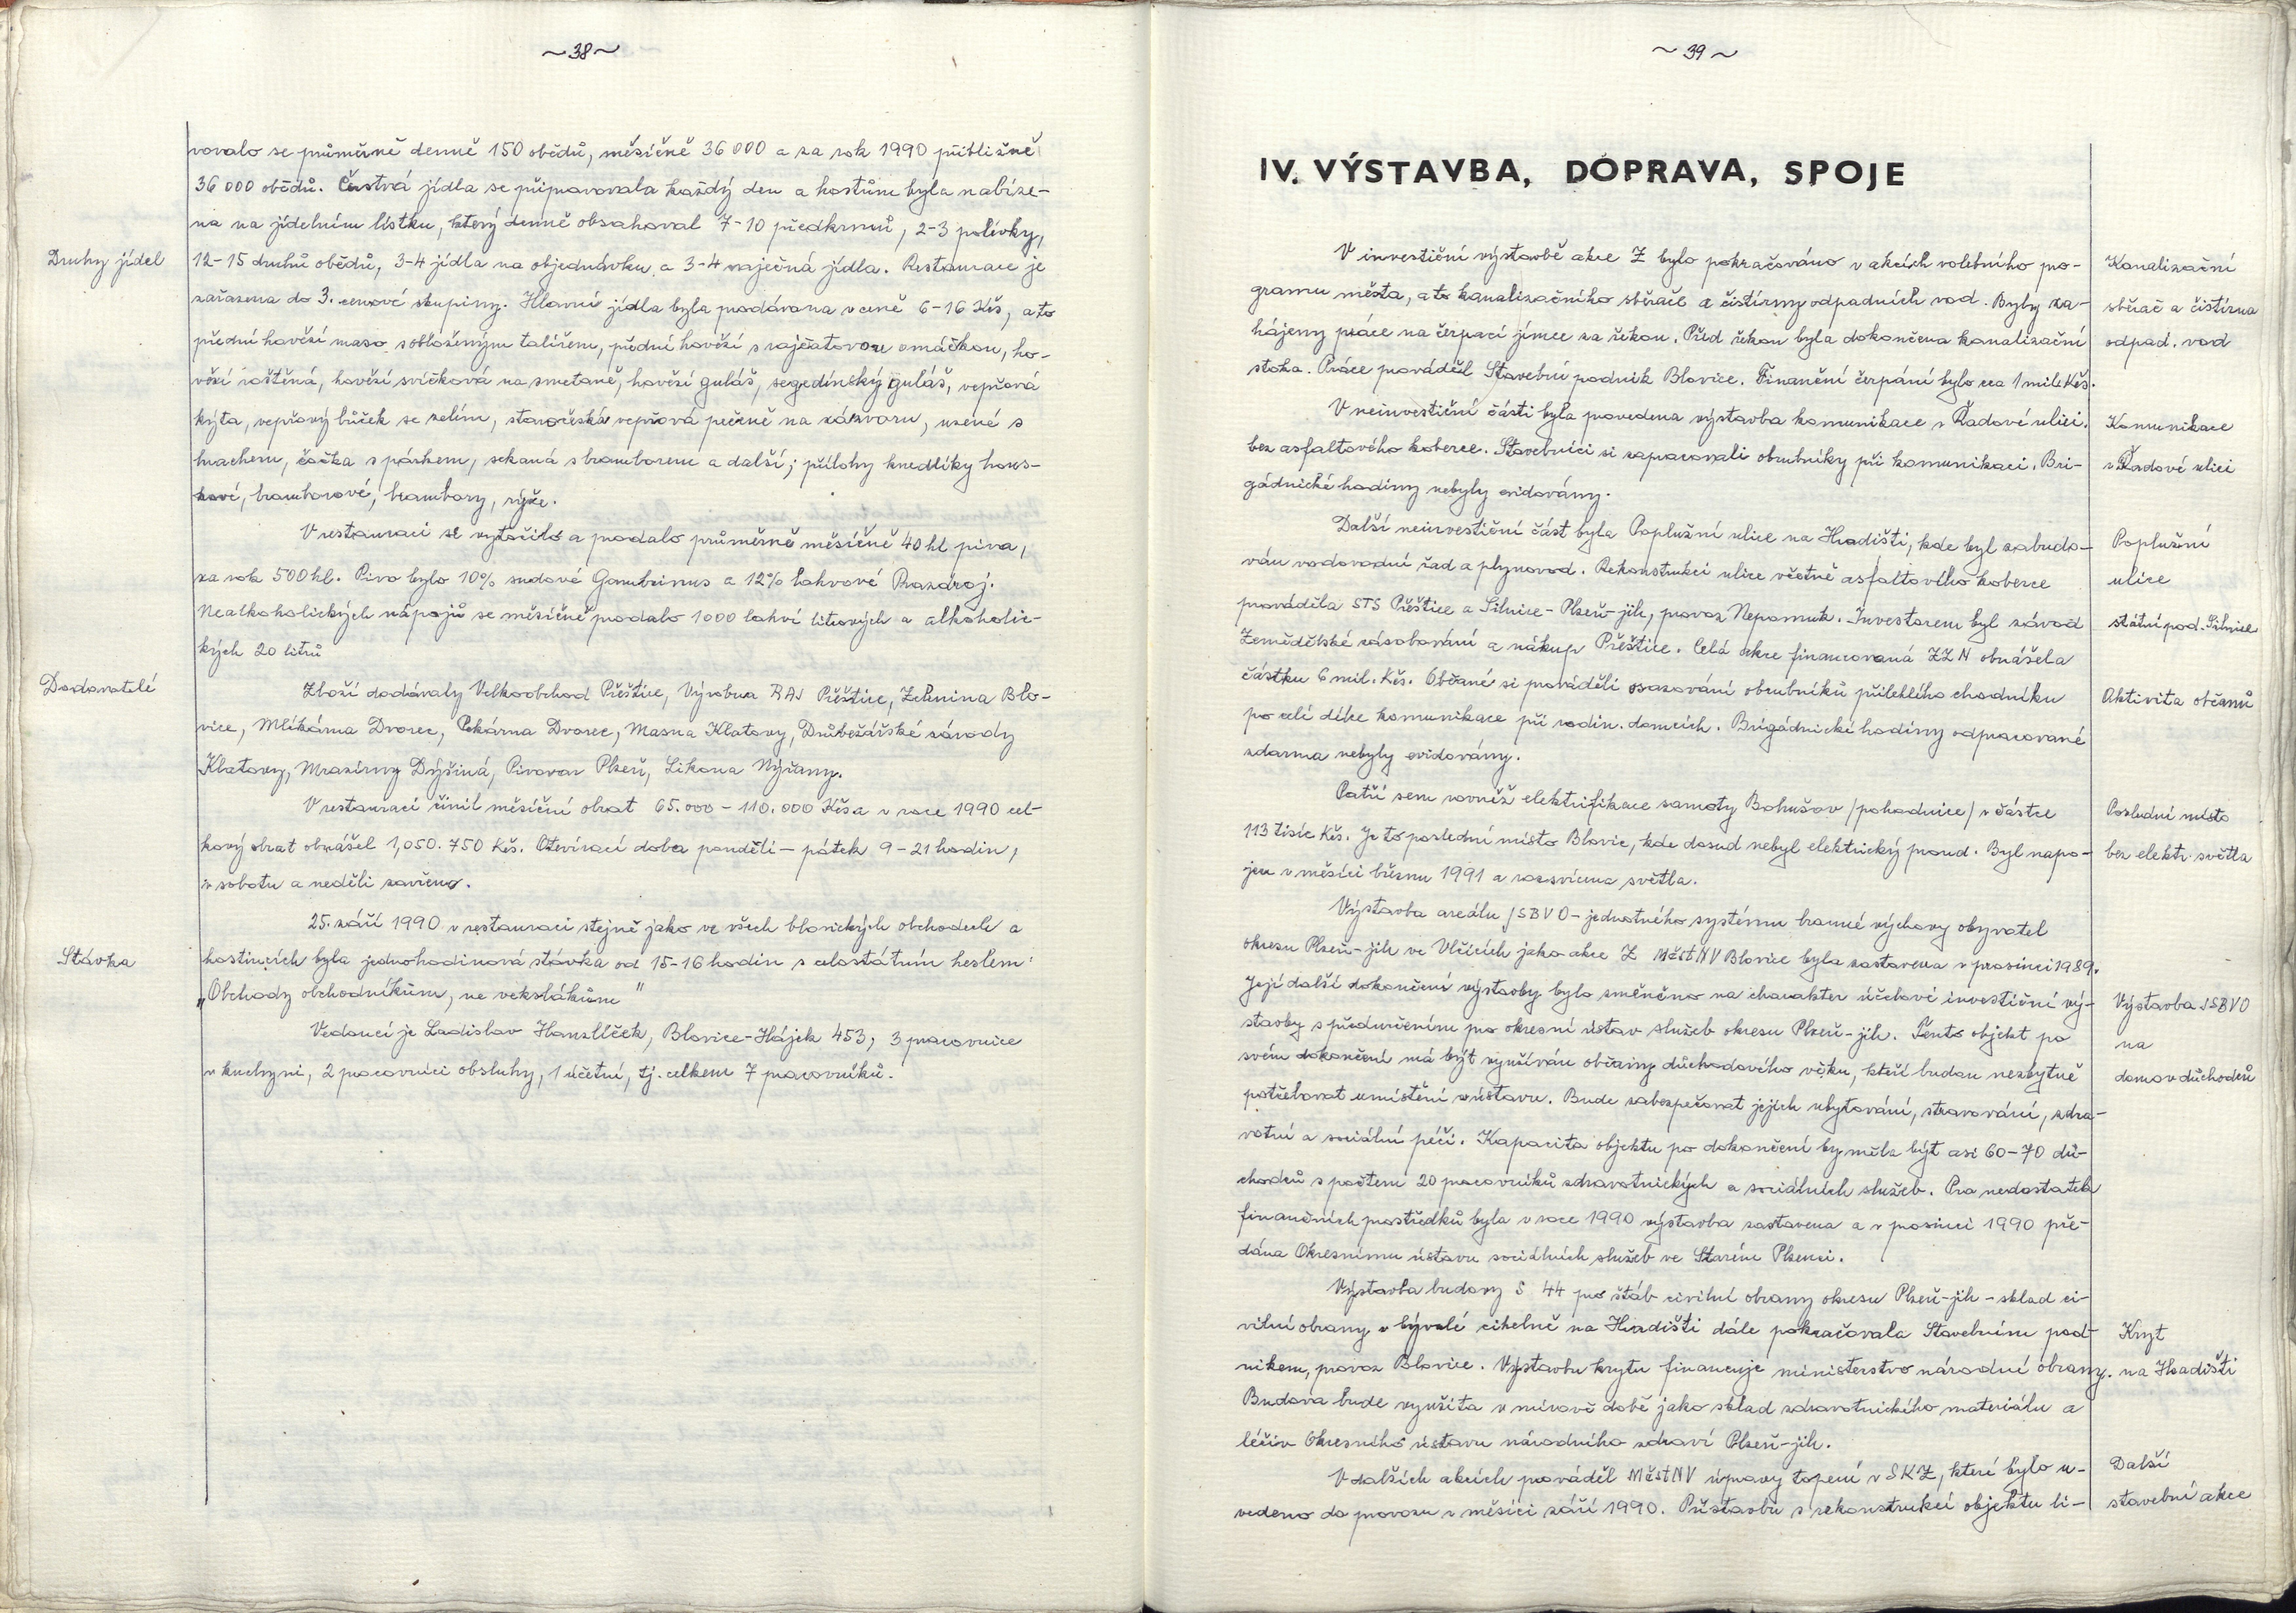 ~38~
vovalo se průměrně denně 150 obědů, měsíčně 36 000 a za rok 1990 přibližně
36 000 obědů. Čerstvá jídla se připravovala každý den a hostům byla nabíze-
na na jídelním lístku, který denně obsahoval 7-10 předkrmů, 2-3 polívky,
Druhy jídel
12-15 druhů obědů, 3-4 jídla na objednávku a 3-4 vaječná jídla. Restaurace je
zařazena do 3. cenové skupiny. Hlavní jídla byla podávána v ceně 6-16 Kčs, a to
přední hovězí maso s obloženým talířem, přední hovězí s rajčatovou omáčkou, ho-
vězí roštěná, hovězí svíčková na smetaně, hovězí guláš, segedínský guláš, vepřová
kýta, vepřový bůček se zelím, staročeská vepřová pečeně na zázvoru, uzené s
hrachem, čočka s párkem, sekaná s bramborem a další; přílohy knedlíky hous-
kové, bramborové, brambory, rýže.
V restauraci se vytočilo a prodalo průměrně měsíčně 40 hl piva,
za rok 500 hl. Pivo bylo 10% sudové Gambrinus a 12% lahvové Prazdroj.
Nealkoholických nápojů se měsíčně prodalo 1000 lahví litrových a alkoholic-
kých 20 litrů
Dodavatelé
Zboží dodávaly Velkoobchod Přeštice, Výrobna RAJ Přeštice, Zelenina Blo-
vice, Mlékárna Dvorec, Pekárna Dvorec, Masna Klatovy, Drůbežářské závody
Klatovy, Mrazírny Dýšiná, Pivovar Plzeň, Likona Nýřany.
V restauraci činil měsíční obrat 65.000 - 110.000 Kčs a v roce 1990 cel-
kový obrat obnášel 1,050.750 Kčs. Otevírací doba pondělí - pátek 9 - 21 hodin,
v sobotu a neděli zavřeno.
25. září 1990 v restauraci stejně jako ve všech blovických obchodech a
Stávka
hostincích byla jednohodinová stávka od 15-16 hodin s celostátním heslem:
„Obchody obchodníkům, ne vekslákům"
Vedoucí je Ladislav Hanzlíček, Blovice-Hájek 453, 3 pracovnice
v kuchyni, 2 pracovníci obsluhy, 1 účetní, tj. celkem 7 pracovníků.
~39~
IV. VÝSTAVBA, DOPRAVA, SPOJE
V investiční výstavbě akce Z bylo pokračováno v akcích volebního pro-
Kanalizační
gramu města, a to kanalizačního sběrače a čistírny odpadních vod. Byly za-
sběrač a čistírna
hájeny práce na čerpací jímce za řekou. Před řekou byla dokončena kanalizační
odpad. vod
stoka. Práce prováděl Stavební podnik Blovice. Finanční čerpání bylo cca 1 mil. Kčs.
V neinvestiční části byla provedena výstavba komunikace v Řadové ulici
Komunikace
bez asfaltového koberce. Stavebníci si zapracovali obrubníky při komunikaci. Bri-
v Řadové ulici
gádnické hodiny nebyly evidovány.
Další neinvestiční část byla Poplužní ulice na Hradišti, kde byl zabudo-
Poplužní
ván vodovodní řad a plynovod. Rekonstrukci ulice včetně asfaltového koberce
ulice
prováděla STS Přeštice a Silnice - Plzeň-jih, provoz Nepomuk. Investorem byl závod
státní pod. Silnice
Zemědělské zásobování a nákup Přeštice. Celá akce financovaná ZZN obnášela
částku 6 mil. Kčs. Občané si prováděli osazování obrubníků přilehlého chodníku
Aktivita občanů
po celé délce komunikace při rodin. domcích. Brigádnické hodiny odpracované
zdarma nebyly evidovány.
Patří sem rovněž elektrifikace samoty Bohušov /pohodnice/ v částce
Poslední místo
113 tisíc Kčs. Je to poslední místo Blovic, kde dosud nebyl elektrický proud. Byl napo-
bez elektr. světla
jen v měsíci březnu 1991 a rozsvícena světla.
Výstavba areálu JSBVO - jednotného systému branné výchovy obyvatel
okresu Plzeň-jih ve Vlčicích jako akce Z MěstNV Blovice byla zastavena v prosinci 1989.
Její další dokončení výstavby bylo změněno na charakter účelové investiční vý-
Výstavba JSBVO
stavby s předurčením pro okresní ústav služeb okresu Plzeň-jih. Tento objekt po
na
svém dokončení má být využíván občany důchodového věku, kteří budou nezbytně
domov důchodců
potřebovat umístění v ústavu. Bude zabezpečovat jejich ubytování, stravování, zdra-
votní a sociální péči. Kapacita objektu po dokončení by měla být asi 60-70 dů-
chodců s počtem 20 pracovníků zdravotnických a sociálních služeb. Pro nedostatek
finančních prostředků byla v roce 1990 výstavba zastavena a v prosinci 1990 pře-
dána Okresnímu ústavu sociálních služeb ve Starém Plzenci.
Výstavba budovy S 44 pro štáb civilní obrany okresu Plzeň-jih - sklad ci-
vilní obrany v bývalé cihelně na Hradišti dále pokračovala Stavebním pod-
Kryt
nikem, provoz Blovice. Výstavbu krytu financuje ministerstvo národní obrany.
na Hradišti
Budova bude využita v mírové době jako sklad zdravotnického materiálu a
léčiv Okresního ústavu národního zdraví Plzeň-jih.
V dalších akcích prováděl MěstNV úpravy topení v SKZ, které bylo u-
Další
vedeno do provozu v měsíci září 1990. Přístavbu s rekonstrukcí objektu li-
stavební akce